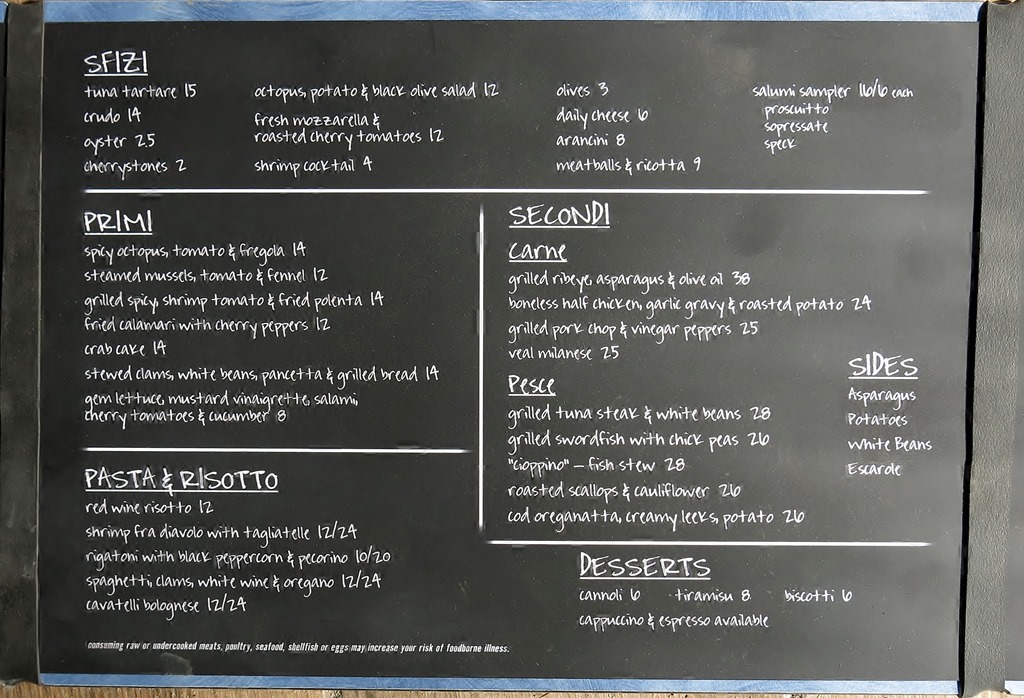 SFIZI
tuna tartare 15
crudo 14
oyster 2.5
cherrystones 2
octopus, potato & black olive salad 12
fresh mozzarella &
roasted cherry tomatoes 12
shrimp cocktail 4
olives 3
daily cheese 6
arancini 8
meatballs & ricotta 9
salumi sampler 16/6 each
prosciutto
sopressate
speck
PRIMI
spicy octopus, tomato & fregola 14
steamed mussels, tomato & fennel 12
grilled spicy, shrimp tomato & fried polenta 14
fried calamari with cherry peppers 12
crab cake 14
stewed clams, white beans, pancetta & grilled bread 14
gem lettuce, mustard vinaigrette, salami,
cherry tomatoes & cucumber 8
PASTA & RISOTTO
red wine risotto 12
shrimp fra diavolo with tagliatelle 12/24
rigatoni with black peppercorn & pecorino 10/20
spaghetti, clams, white wine & oregano 12/24
cavatelli bolognese 12/24
consuming raw or undercooked meats, poultry, seafood, shellfish or eggs may increase your risk of foodborne illness.
SECONDI
Carne
grilled ribeye, asparagus & olive oil 38
boneless half chicken, garlic gravy & roasted potato 24
grilled pork chop & vinegar peppers 25
veal milanese 25
Pesce
grilled tuna steak & white beans 28
grilled swordfish with chick peas 26
"cioppino" – fish stew 28
roasted scallops & cauliflower 26
cod oreganatta, creamy leeks, potato 26
SIDES
Asparagus
Potatoes
White Beans
Escarole
DESSERTS
cannoli 6 tiramisu 8 biscotti 6
cappuccino & espresso available